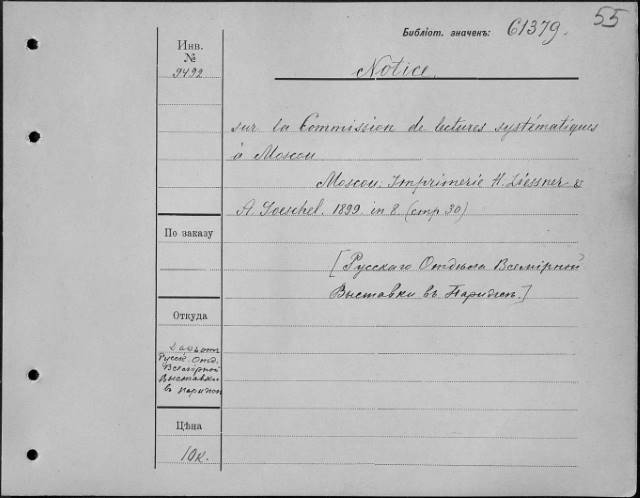 55
Библіот. значенъ: 61379.
Инв.
№
9492
Notice
sur la Commission de lectures systématiques
à Moscou
Moscou: Imprimerie H. Liessner &
A. Goeschel. 1899. in 8. (стр 30)
По заказу
[Русскаго Отдѣла Всемірной
Выставки въ Парижѣ.]
Откуда
Русск. Отд.
Всемірной
Выставки
въ Парижѣ
Цѣна
10к.